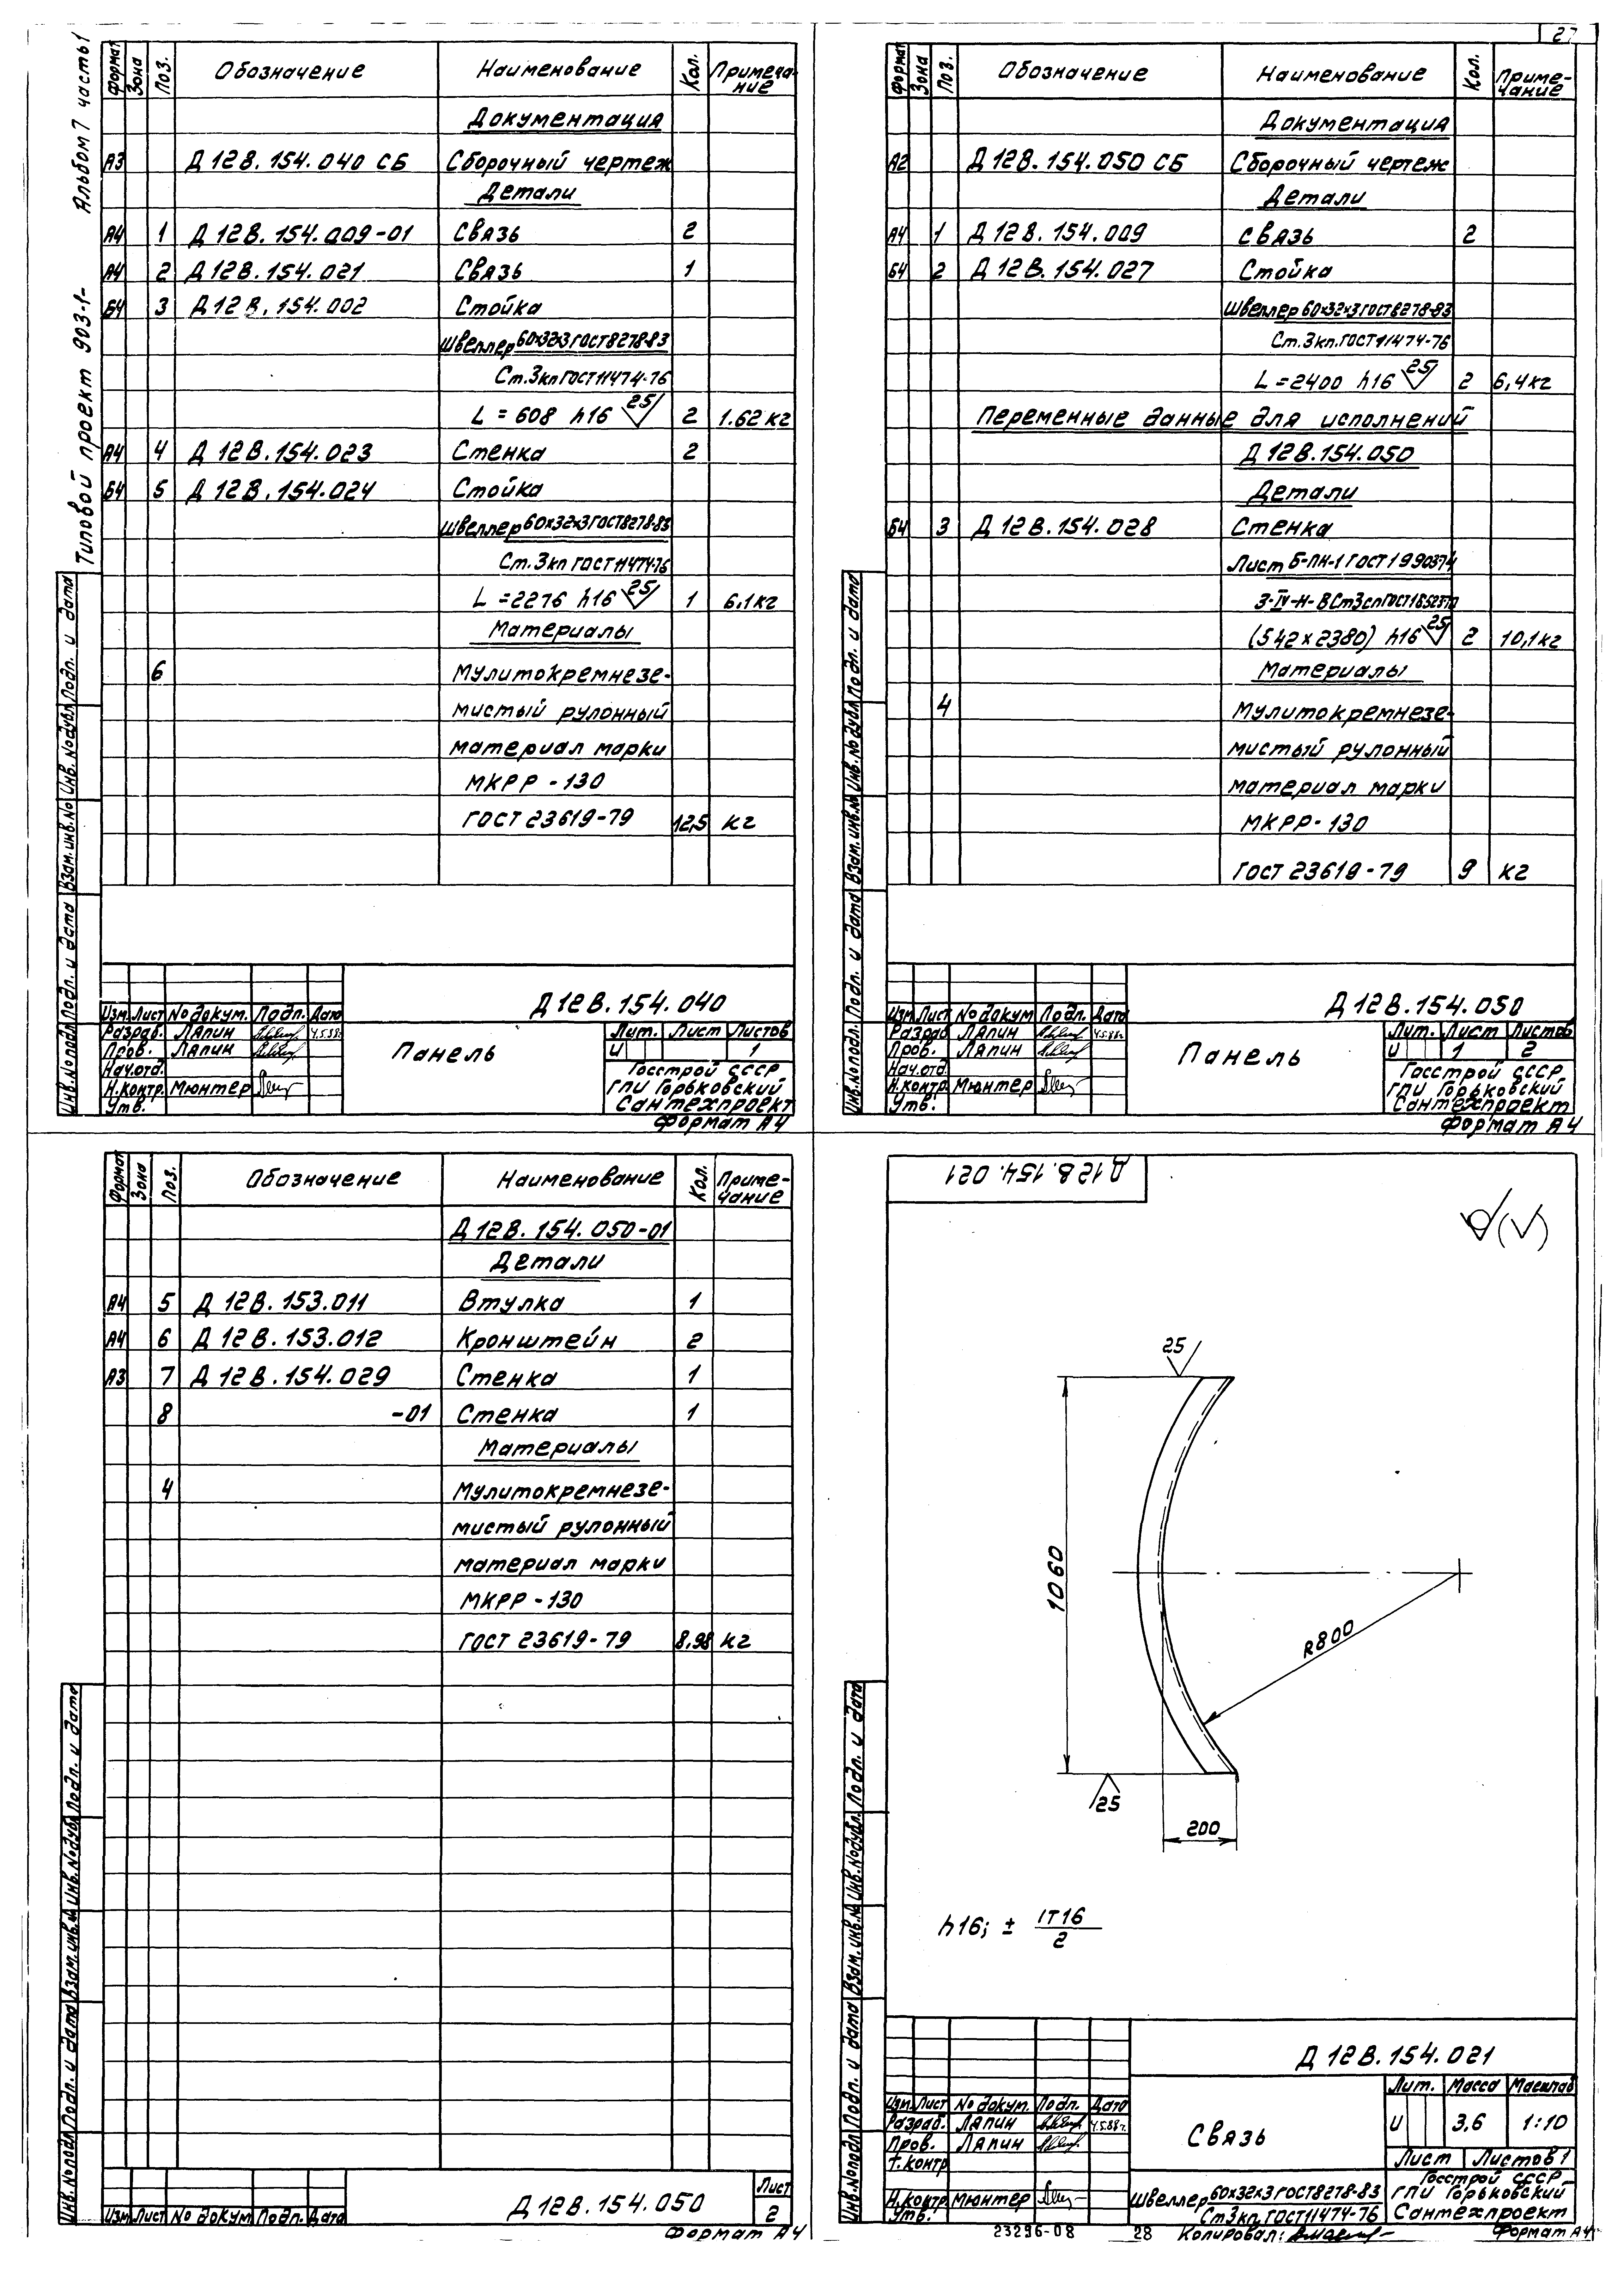 27
Альбом 7 часть 1
Типовой проект 903-1-
Формат Зона Поз. Обозначение Наименование Кол. Примеча-
ние
Документация
А3 Д 12В.154.040 СБ Сборочный чертеж
Детали
А4 1 Д 12В.154.009-01 Связь 2
А4 2 Д 12В.154.021 Связь 1
Б4 3 Д 12В.154.002 Стойка
Швеллер 60х32х3 ГОСТ 8278-83
Ст.3кп ГОСТ 11474-76
L = 608 h16 25 2 1.62 кг
А4 4 Д 12В.154.023 Стенка 2
Б4 5 Д 12В.154.024 Стойка
Швеллер 60х32х3 ГОСТ 8278-83
Ст.3кп ГОСТ 11474-76
L = 2276 h16 25 1 6,1 кг
Материалы
6 Мулитокремнезе-
мистый рулонный
материал марки
МКРР - 130
ГОСТ 23619-79 12,5 кг
Инв.№подл. Подл. и дата Взам.инв.№ Инв.№дубл. Подл. и дата
Д 12В.154.040
Изм. Лист № докум. Подп. Дата
Разраб. Ляпин 4.5.88г.
Пров. Ляпин
Нач.отд.
Н.контр. Мюнтер
Утв.
Панель
Лит. Лист Листов
И 1
Госстрой СССР
ГПИ Горьковский
Сантехпроект
Формат А4
Формат Зона Поз. Обозначение Наименование Кол. Приме-
чание
Документация
А2 Д 12В.154.050 СБ Сборочный чертеж
Детали
А4 1 Д 12В.154.009 Связь 2
Б4 2 Д 12В.154.027 Стойка
Швеллер 60х32х3 ГОСТ 8278-83
Ст.3кп. ГОСТ 11474-76
L = 2400 h16 25 2 6,4 кг
Переменные данные для исполнений
Д 12В.154.050
Детали
Б4 3 Д 12В.154.028 Стенка
Лист Б-ПН-1 ГОСТ 19903-74
3-IV-Н-ВСт3сп ГОСТ 16523-70
(542 х 2380) h16 25 2 10,1 кг
Материалы
4 Мулитокремнезе-
мистый рулонный
материал марки
МКРР - 130
ГОСТ 23619-79 9 кг
Инв.№подл. Подл. и дата Взам.инв.№ Инв.№дубл. Подл. и дата
Д 12В.154.050
Изм. Лист № докум. Подп. Дата
Разраб. Ляпин 4.5.88г.
Пров. Ляпин
Нач.отд.
Н.контр. Мюнтер
Утв.
Панель
Лит. Лист Листов
И 1 2
Госстрой СССР
ГПИ Горьковский
Сантехпроект
Формат А4
Формат Зона Поз. Обозначение Наименование Кол. Приме-
чание
Д 12В.154.050-01
Детали
А4 5 Д 12В.153.011 Втулка 1
А4 6 Д 12В.153.012 Кронштейн 2
А3 7 Д 12В.154.029 Стенка 1
8 -01 Стенка 1
Материалы
4 Мулитокремнезе-
мистый рулонный
материал марки
МКРР - 130
ГОСТ 23619-79 8,98 кг
Инв.№подл. Подл. и дата Взам.инв.№ Инв.№дубл. Подл. и дата
Изм. Лист № докум. Подп. Дата
Д 12В.154.050
Лист
2
Формат А4
Д 12В.154.021
(√)
25
1060
R800
25
200
h16; ± IT16
2
Инв.№подл. Подл. и дата Взам.инв.№ Инв.№дубл. Подл. и дата
Д 12В.154.021
Изм. Лист № докум. Подп. Дата
Разраб. Ляпин 4.5.88г.
Пров. Ляпин
Т.контр
Н.контр. Мюнтер
Утв.
Связь
Лит. Масса Масштаб
И 3,6 1:10
Лист Листов 1
Швеллер 60х32х3 ГОСТ 8278-83
Ст3кп ГОСТ 11474-76
Госстрой СССР
ГПИ Горьковский
Сантехпроект
23296-08 28 Копировал: Формат А4